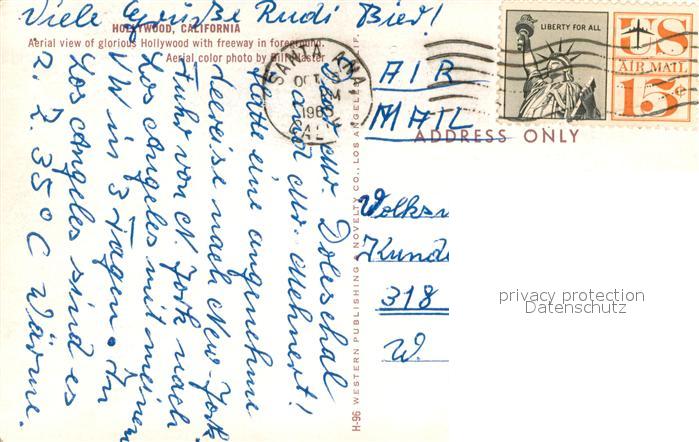 Viele Grüße Rudi Bierl!
HOLLYWOOD, CALIFORNIA
Aerial view of glorious Hollywood with freeway in foreground.
Aerial color photo by Bill Master
Dear Mr. Doleschal
and Mr. Mehnert!
Hatte eine angenehme
Seereise nach New-York.
Fuhr von N. York nach
Los Angeles mit meinem
VW in 3 Tagen. In
Los Angeles sind es
z. Z. 35° C Wärme.
H-96 WESTERN PUBLISHING & NOVELTY CO., LOS ANGELES, CALIF.
SANTA ANA
OCT
M
196
CALIF
LIBERTY FOR ALL
US
AIR MAIL
15¢
AIR
MAIL
ADDRESS ONLY
Volksw
Kund
318
W.
privacy protection
Datenschutz